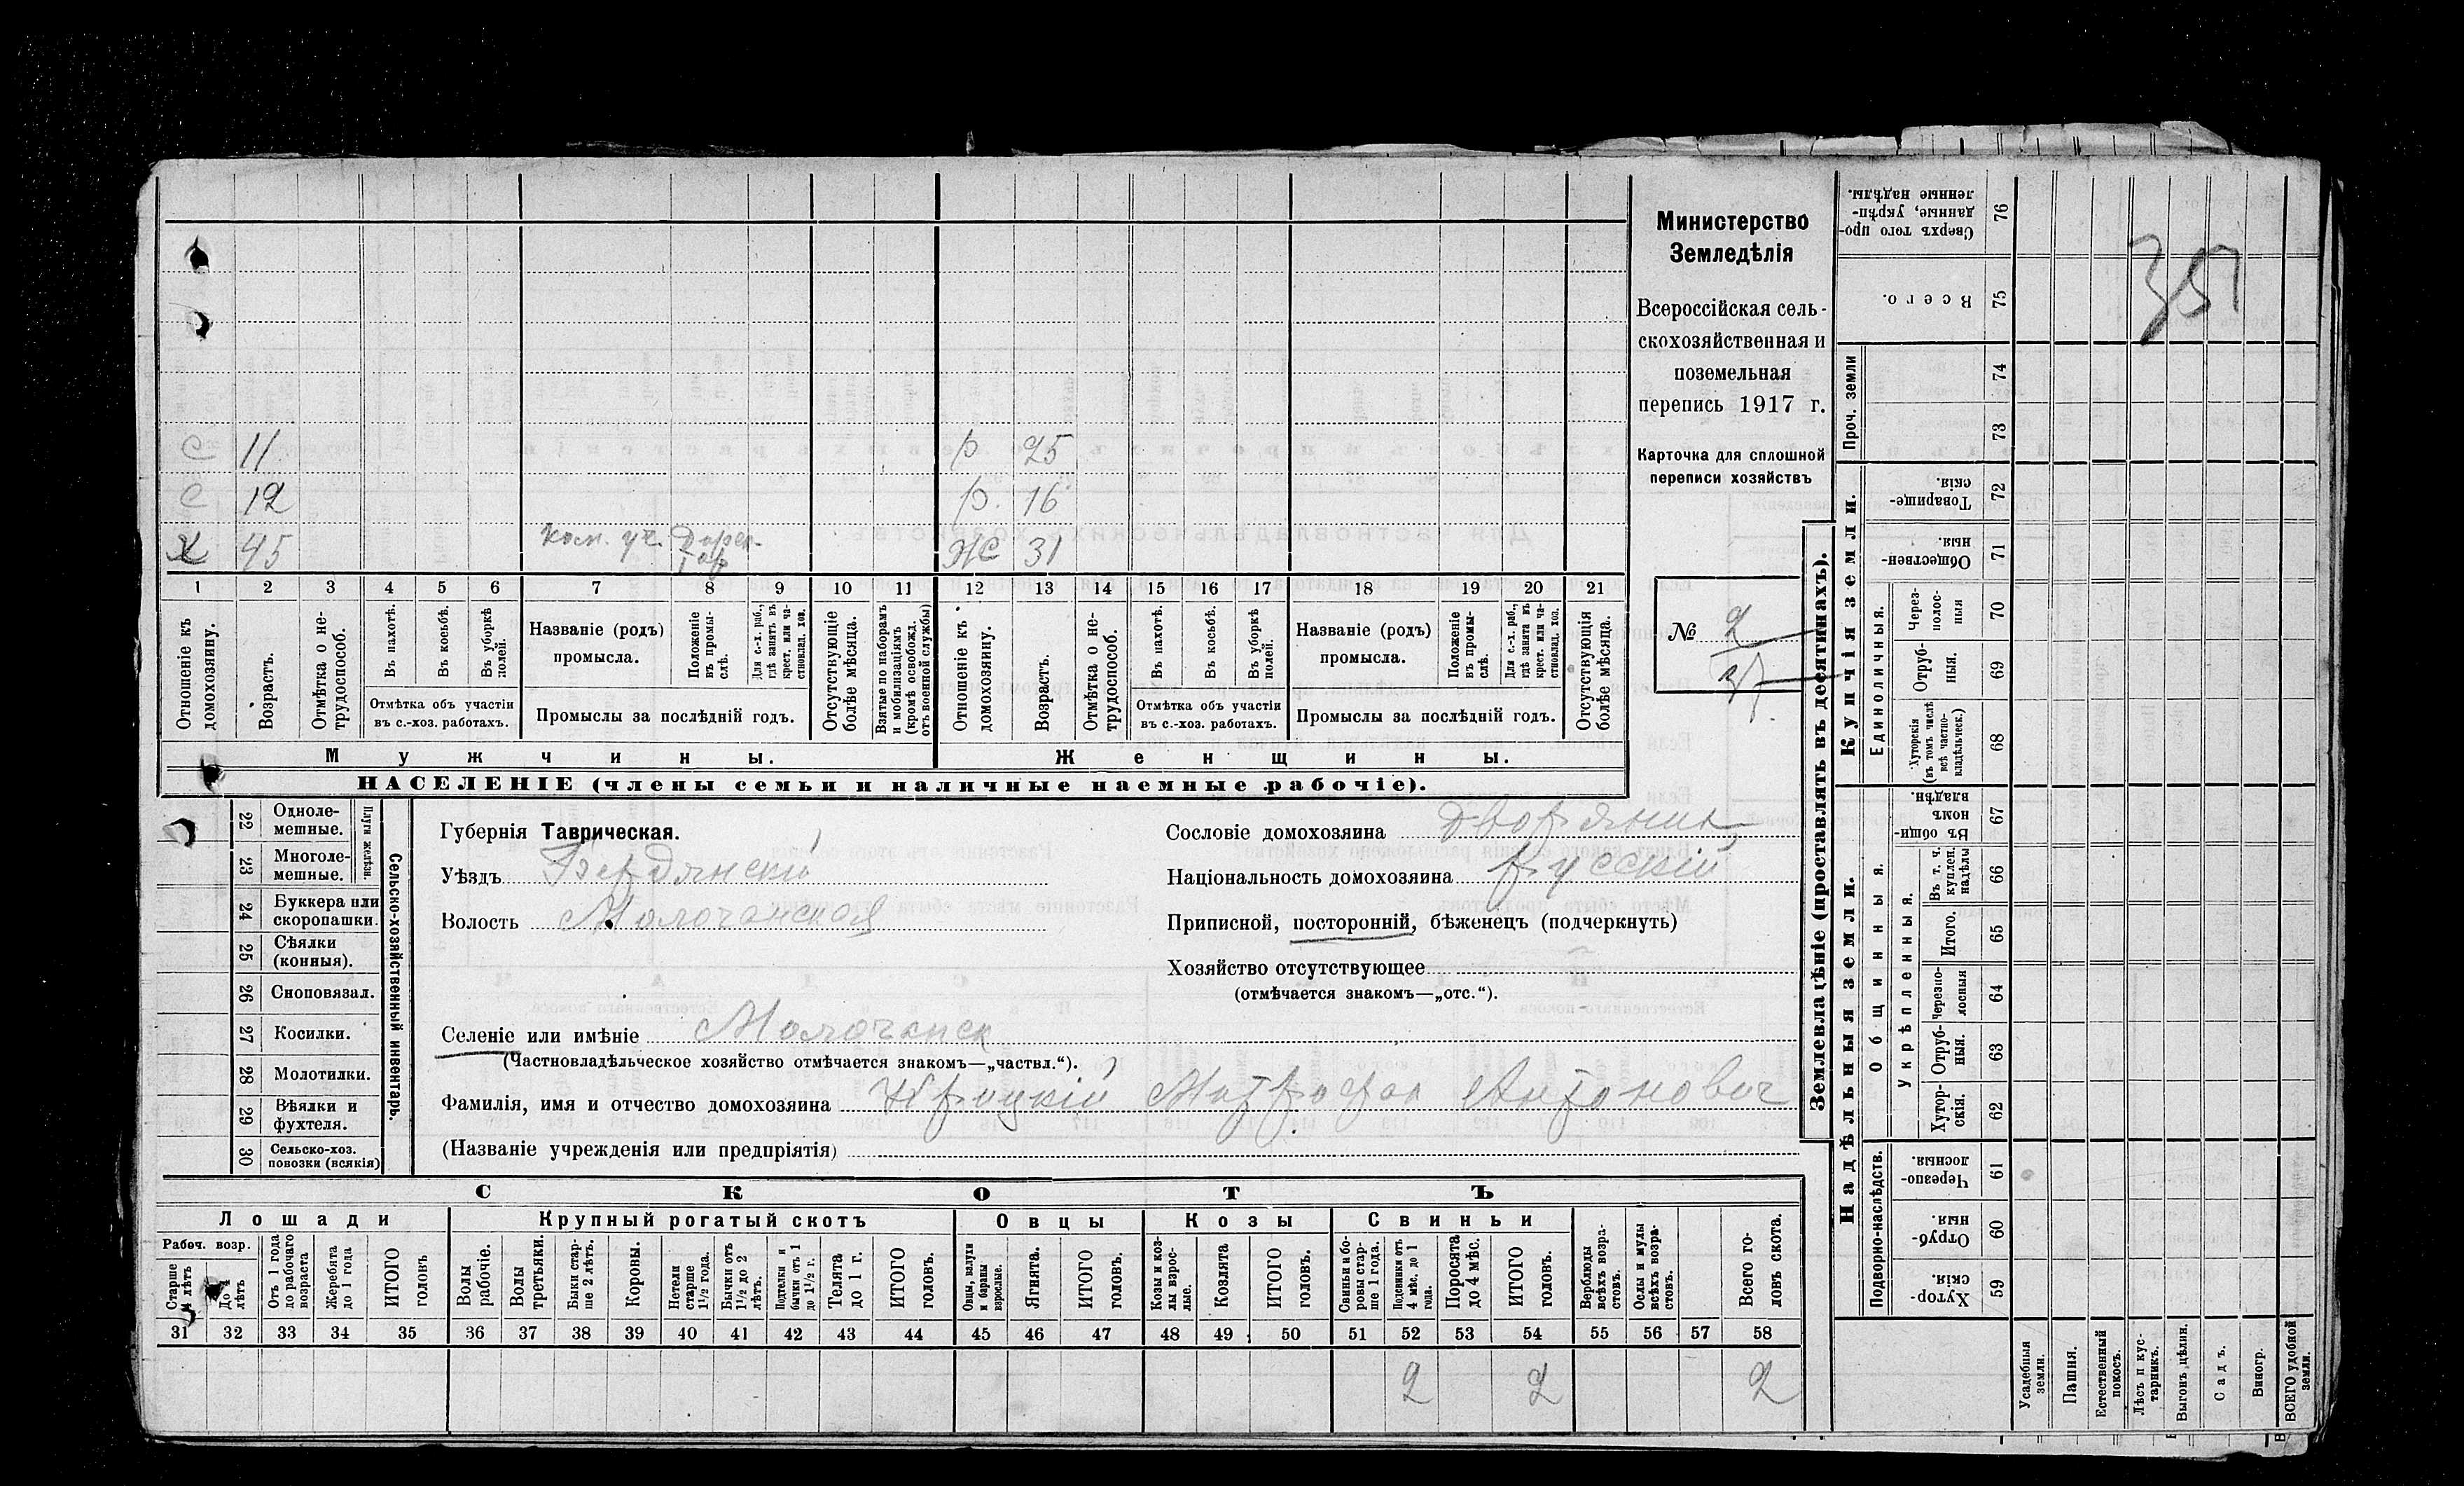 С 11 р 25
С 12 р. 16
Х 45 Жс 31
1 2 3 4 5 6 7 8 9 10 11 12 13 14 15 16 17 18 19 20 21
Отношеніе къ домохозяину.
Возрастъ.
Отмѣтка о не-трудоспособ.
Въ пахотѣ.
Въ косьбѣ.
Въ уборкѣ полей.
Отмѣтка объ участіи
въ с.-хоз. работахъ.
Названіе (родъ)
промысла.
Положеніе въ промы-слѣ.
Для с.-х. раб., гдѣ занятъ въ крест. или ча-стновлад. хоз.
Промыслы за послѣдній годъ.
Отсутствующіе болѣе мѣсяца.
Взятые по наборамъ и мобилизаціямъ (кромѣ освобожд. отъ военной службы)
Отношеніе къ домохозяину.
Возрастъ.
Отмѣтка о не-трудоспособ.
Въ пахотѣ.
Въ косьбѣ.
Въ уборкѣ полей.
Отмѣтка объ участіи
въ с.-хоз. работахъ.
Названіе (родъ)
промысла.
Положеніе въ промы-слѣ.
Для с.-х. раб., гдѣ занята въ крест. или ча-стновлад. хоз.
Промыслы за послѣдній годъ.
Отсутствующія болѣе мѣсяца.
Мужчины. Женщины.
НАСЕЛЕНІЕ (члены семьи и наличные наемные рабочіе).
Министерство
Земледѣлія
Всероссійская сель-
скохозяйственная и
поземельная
перепись 1917 г.
Карточка для сплошной
переписи хозяйствъ
№ 2
22 Одноле-мешные.
23 Многоле-мешные.
Плуги желѣзн.
24 Буккера или скоропашки.
25 Сѣялки (конныя).
26 Сноповязал.
27 Косилки.
28 Молотилки.
29 Вѣялки и фухтеля.
30 Сельско-хоз. повозки (всякія)
Сельско-хозяйственный инвентарь.
Губернія Таврическая.
Уѣздъ Бердянскій
Волость Молочанская
Сословіе домохозяина Дворянинъ
Національность домохозяина русскій
Приписной, посторонній, бѣженецъ (подчеркнуть)
Хозяйство отсутствующее
(отмѣчается знакомъ—„отс.“).
Селеніе или имѣніе Молочанск
(Частновладѣльческое хозяйство отмѣчается знакомъ—„частвл.“).
Фамилія, имя и отчество домохозяина Митрофан Антонович
(Названіе учрежденія или предпріятія)
СКОТЪ
Лошади Крупный рогатый скотъ Овцы Козы Свиньи
Рабоч. возр.
Старше 4 лѣтъ
До 4 лѣтъ
Отъ 1 года до рабочаго возраста
Жеребята до 1 года
ИТОГО головъ
Волы рабочіе.
Волы третьяки.
Быки стар-ше 2 лѣтъ.
Коровы.
Нетели старше 1½ года.
Бычки отъ 1½ до 2 лѣтъ.
Подтелки и бычки отъ 1 до 1½ г.
Телята до 1 г.
ИТОГО головъ.
Овцы, валухи и бараны взрослые.
Ягнята.
ИТОГО головъ.
Козы и коз-лы взрос-лые.
Козлята
ИТОГО головъ.
Свиньи и бо-ровы стар-ше 1 года.
Подсвинки отъ 4 мѣс. до 1 года.
Поросята до 4 мѣс.
ИТОГО головъ.
Верблюды всѣхъ возра-стовъ.
Ослы и мулы всѣхъ возра-стовъ.
Всего го-ловъ скота.
31 32 33 34 35 36 37 38 39 40 41 42 43 44 45 46 47 48 49 50 51 52 53 54 55 56 57 58
2 2 2
Землевладѣніе (проставлять въ десятинахъ).
Купчія земли.
Надѣльныя земли.
Сверхъ того про-данные, укрѣп-ленные надѣлы. 76
Всего. 75
Проч. земли 74 73
Товарище-скія. 72
Обществен-ныя. 71
Единоличныя.
Через-полос-ныя 70
Отруб-ныя. 69
Хуторскія (въ томъ числѣ всѣ частно-владѣльческ.) 68
Общинныя.
Въ общи-номъ владѣн. 67
Укрѣпленныя.
Въ т. ч. куплен. надѣлы 66
Итого. 65
Черезпо-лосныя 64
Отруб-ныя. 63
Хутор-скія. 62
Подворно-наслѣдств.
Черезпо-лосныя. 61
Отруб-ныя. 60
Хутор-скія. 59
Усадебныя земли.
Пашня.
Естественный покосъ.
Лѣсъ и кус-тарникъ.
Выгонъ цѣлин.
Садъ.
Виногр.
ВСЕГО удобной земли.
351